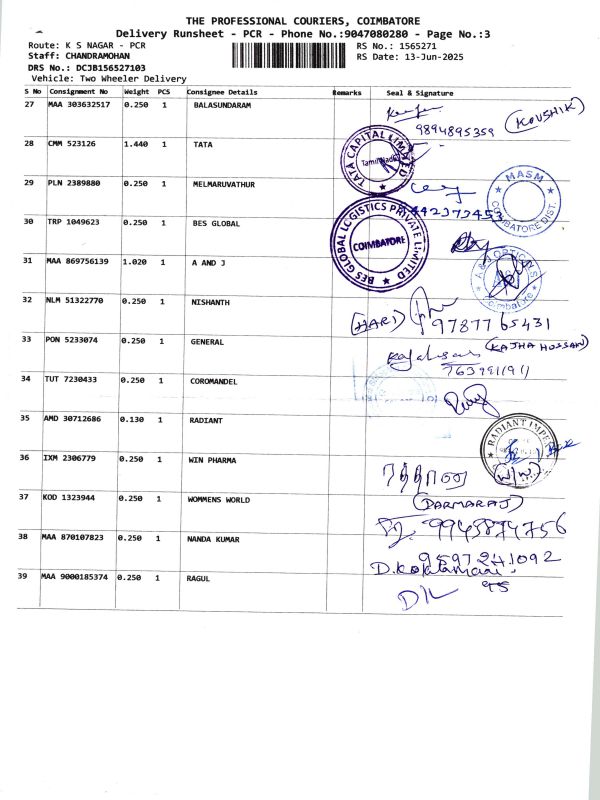 THE PROFESSIONAL COURIERS, COIMBATORE
Delivery Runsheet - PCR - Phone No.:9047080280 - Page No.:3
Route: K S NAGAR - PCR RS No.: 1565271
Staff: CHANDRAMOHAN RS Date: 13-Jun-2025
DRS No.: DCJB156527103
Vehicle: Two Wheeler Delivery
S No Consignment No Weight PCS Consignee Details Remarks Seal & Signature
27 MAA 303632517 0.250 1 BALASUNDARAM (KOUSHIK)
9894895359
28 CMM 523126 1.440 1 TATA TATA CAPITAL LIMITED Tamil Nadu
29 PLN 2389880 0.250 1 MELMARUVATHUR MASM COIMBATORE DIST.
30 TRP 1049623 0.250 1 BES GLOBAL BES GLOBAL LOGISTICS PRIVATE LIMITED COIMBATORE
31 MAA 869756139 1.020 1 A AND J A & J OPTICALS Coimbatore
32 NLM 51322770 0.250 1 NISHANTH
(HARI) 9787765431
33 PON 5233074 0.250 1 GENERAL (KAJHA HOSSAN)
34 TUT 7230433 0.250 1 COROMANDEL
35 AMD 30712686 0.130 1 RADIANT RADIANT IMPEX
36 IXM 2306779 0.250 1 WIN PHARMA
37 KOD 1323944 0.250 1 WOMMENS WORLD (DARMARAJ)
9943874756
38 MAA 870107823 0.250 1 NANDA KUMAR 9597241092
39 MAA 9000185374 0.250 1 RAGUL